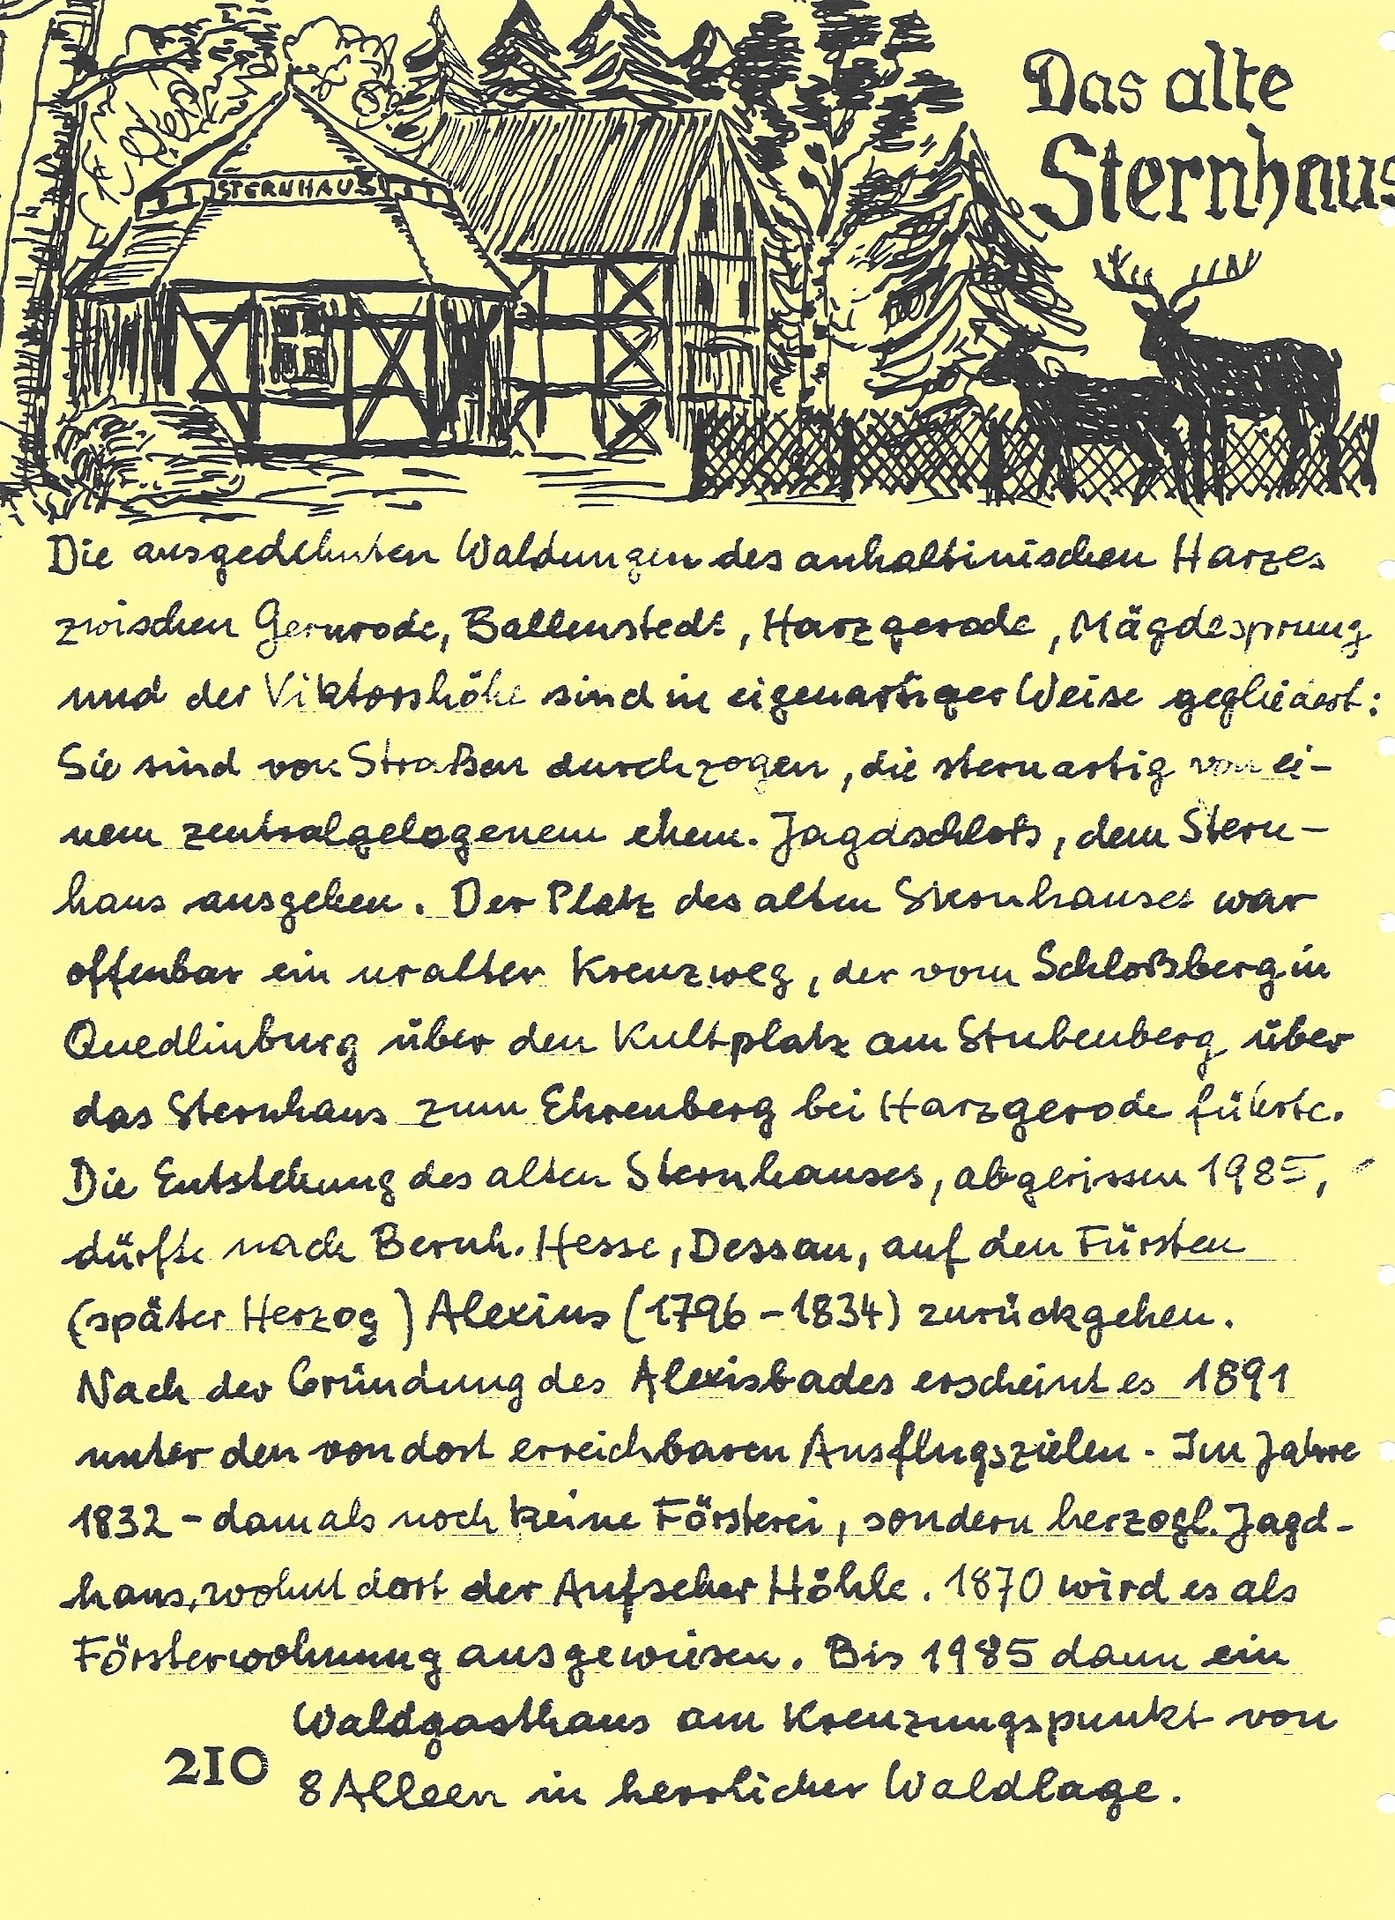 Das alte
Sternhaus
STERNHAUS
Die ausgedehnten Waldungen des anhaltinischen Harzes
zwischen Gernrode, Ballenstedt, Harzgerode, Mägdesprung
und der Viktorshöhe sind in eigenartiger Weise gegliedert:
Sie sind von Straßen durchzogen, die sternartig von ei-
nem zentralgelegenem ehem. Jagdschloß, dem Stern-
haus ausgehen. Der Platz des alten Sternhauses war
offenbar ein uralter Kreuzweg, der vom Schloßberg in
Quedlinburg über den Kultplatz am Stubenberg über
das Sternhaus zum Ehrenberg bei Harzgerode führte.
Die Entstehung des alten Sternhauses, abgerissen 1985,
dürfte nach Bernh. Hesse, Dessau, auf den Fürsten
(später Herzog) Alexius (1796-1834) zurückgehen.
Nach der Gründung des Alexisbades erscheint es 1891
unter den von dort erreichbaren Ausflugszielen. Im Jahre
1832 - damals noch keine Försterei, sondern herzogl. Jagd-
haus, wohnt dort der Aufseher Höhle. 1870 wird es als
Försterwohnung ausgewiesen. Bis 1985 dann ein
Waldgasthaus am Kreuzungspunkt von
8 Alleen in herrlicher Waldlage.
210